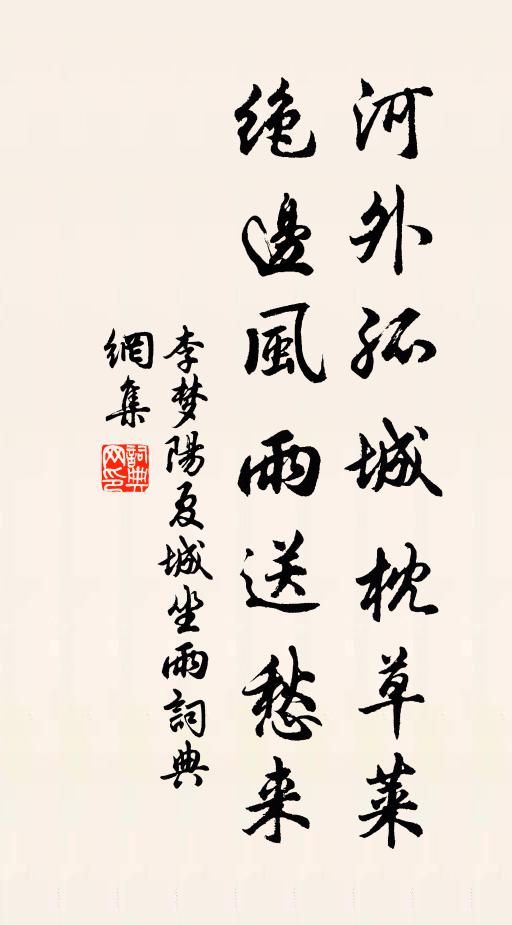 河外孤城枕草莱
绝邊風雨送愁来
李梦陽夏城坐雨詞典
網集
詞典
网印